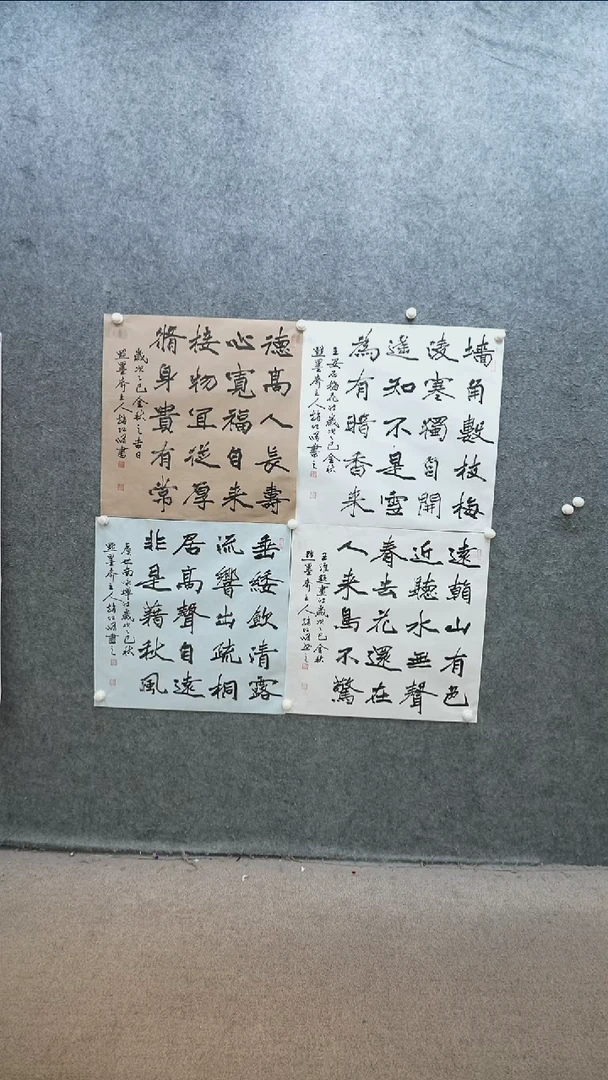 墻角數枝梅
淩寒獨自開
遥知不是雪
為有暗香来
王安石梅花詩歲次乙巳金秋
墨齋主人書之
德高人長壽
心寬福自来
接物宜從厚
脩身貴有常
歲次乙巳金秋之吉日
墨齋主人書
遠觀山有色
近聽水無聲
春去花還在
人来鳥不驚
王維題畫詩歲次乙巳金秋
墨齋主人書之
垂緌飲清露
流響出疏桐
居高聲自遠
非是藉秋風
虞世南詠蟬詩歲次乙巳秋
墨齋主人書之